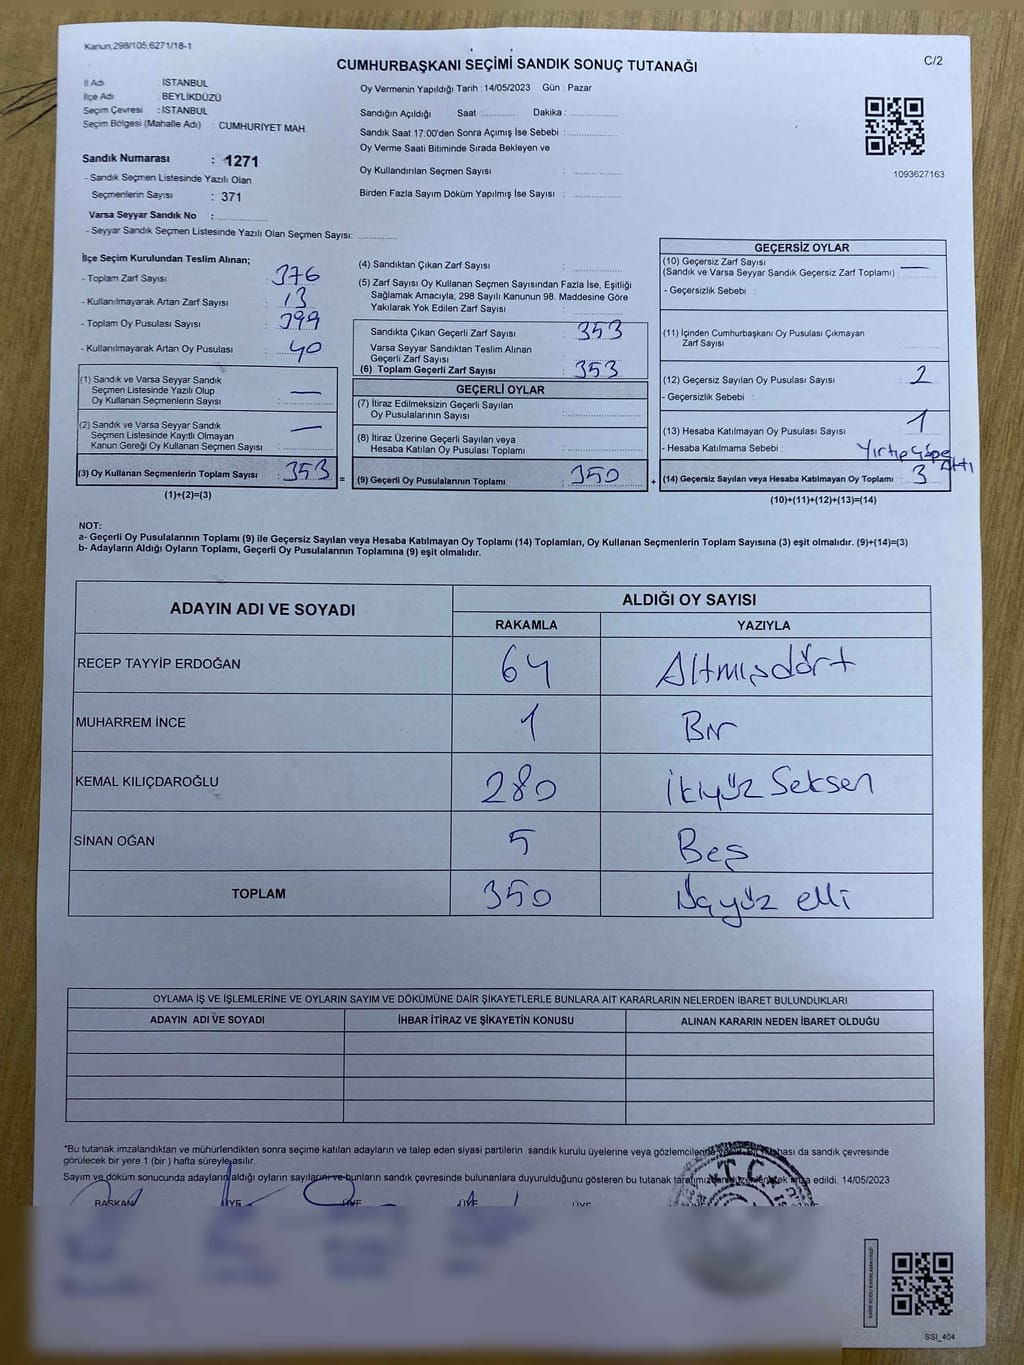 Kanun,298/105,6271/18-1
C/2
CUMHURBAŞKANI SEÇİMİ SANDIK SONUÇ TUTANAĞI
İl Adı İSTANBUL
İlçe Adı : BEYLİKDÜZÜ
Seçim Çevresi : İSTANBUL
Seçim Bölgesi (Mahalle Adı) : CUMHURİYET MAH.
Sandık Numarası : 1271
- Sandık Seçmen Listesinde Yazılı Olan
Seçmenlerin Sayısı : 371
Varsa Seyyar Sandık No :
- Seyyar Sandık Seçmen Listesinde Yazılı Olan Seçmen Sayısı:
Oy Vermenin Yapıldığı Tarih : 14/05/2023 Gün : Pazar
Sandığın Açıldığı Saat : Dakika :
Sandık Saat 17:00'den Sonra Açımış İse Sebebi :
Oy Verme Saati Bitiminde Sırada Bekleyen ve
Oy Kullandırılan Seçmen Sayısı :
Birden Fazla Sayım Döküm Yapılmış İse Sayısı :
1093627163
İlçe Seçim Kurulundan Teslim Alınan;
- Toplam Zarf Sayısı : 376
- Kullanılmayarak Artan Zarf Sayısı : 13
- Toplam Oy Pusulası Sayısı : 399
- Kullanılmayarak Artan Oy Pusulası : 40
(1) Sandık ve Varsa Seyyar Sandık
Seçmen Listesinde Yazılı Olup
Oy Kullanan Seçmenlerin Sayısı : —
(2) Sandık ve Varsa Seyyar Sandık
Seçmen Listesinde Kayıtlı Olmayan
Kanun Gereği Oy Kullanan Seçmen Sayısı : —
(3) Oy Kullanan Seçmenlerin Toplam Sayısı : 353
(1)+(2)=(3)
(4) Sandıktan Çıkan Zarf Sayısı :
(5) Zarf Sayısı Oy Kullanan Seçmen Sayısından Fazla İse, Eşitliği
Sağlamak Amacıyla; 298 Sayılı Kanunun 98. Maddesine Göre
Yakılarak Yok Edilen Zarf Sayısı :
Sandıkta Çıkan Geçerli Zarf Sayısı : 353
Varsa Seyyar Sandıktan Teslim Alınan
Geçerli Zarf Sayısı :
(6) Toplam Geçerli Zarf Sayısı : 353
GEÇERLİ OYLAR
(7) İtiraz Edilmeksizin Geçerli Sayılan
Oy Pusulalarının Sayısı :
(8) İtiraz Üzerine Geçerli Sayılan veya
Hesaba Katılan Oy Pusulası Toplamı :
= (9) Geçerli Oy Pusulalarının Toplamı : 350 +
GEÇERSİZ OYLAR
(10) Geçersiz Zarf Sayısı
(Sandık ve Varsa Seyyar Sandık Geçersiz Zarf Toplamı) : —
- Geçersizlik Sebebi :
(11) İçinden Cumhurbaşkanı Oy Pusulası Çıkmayan
Zarf Sayısı :
(12) Geçersiz Sayılan Oy Pusulası Sayısı : 2
- Geçersizlik Sebebi :
(13) Hesaba Katılmayan Oy Pusulası Sayısı : 1
- Hesaba Katılmama Sebebi : Yırtıp çöpe Attı
(14) Geçersiz Sayılan veya Hesaba Katılmayan Oy Toplamı : 3
(10)+(11)+(12)+(13)=(14)
NOT:
a- Geçerli Oy Pusulalarının Toplamı (9) ile Geçersiz Sayılan veya Hesaba Katılmayan Oy Toplamı (14) Toplamları, Oy Kullanan Seçmenlerin Toplam Sayısına (3) eşit olmalıdır. (9)+(14)=(3)
b- Adayların Aldığı Oyların Toplamı, Geçerli Oy Pusulalarının Toplamına (9) eşit olmalıdır.
ADAYIN ADI VE SOYADI ALDIĞI OY SAYISI
RAKAMLA YAZIYLA
RECEP TAYYİP ERDOĞAN 64 Altmışdört
MUHARREM İNCE 1 Bir
KEMAL KILIÇDAROĞLU 280 İkiyüz Seksen
SİNAN OĞAN 5 Beş
TOPLAM 350 Üçyüz elli
OYLAMA İŞ VE İŞLEMLERİNE VE OYLARIN SAYIM VE DÖKÜMÜNE DAİR ŞİKAYETLERLE BUNLARA AİT KARARLARIN NELERDEN İBARET BULUNDUKLARI
ADAYIN ADI VE SOYADI İHBAR İTİRAZ VE ŞİKAYETİN KONUSU ALINAN KARARIN NEDEN İBARET OLDUĞU
*Bu tutanak imzalandıktan ve mühürlendikten sonra seçime katılan adayların ve talep eden siyasi partilerin sandık kurulu üyelerine veya gözlemcilerine sandık çevresinde
görülecek bir yere 1 (bir ) hafta süreyle asılır.
Sayım ve döküm sonucunda adayların aldığı oyların sayılarını ve bunların sandık çevresinde bulunanlara duyurulduğunu gösteren bu tutanak edildi. 14/05/2023
BAŞKAN ÜYE ÜYE ÜYE ÜYE
T.C.
SSI_404